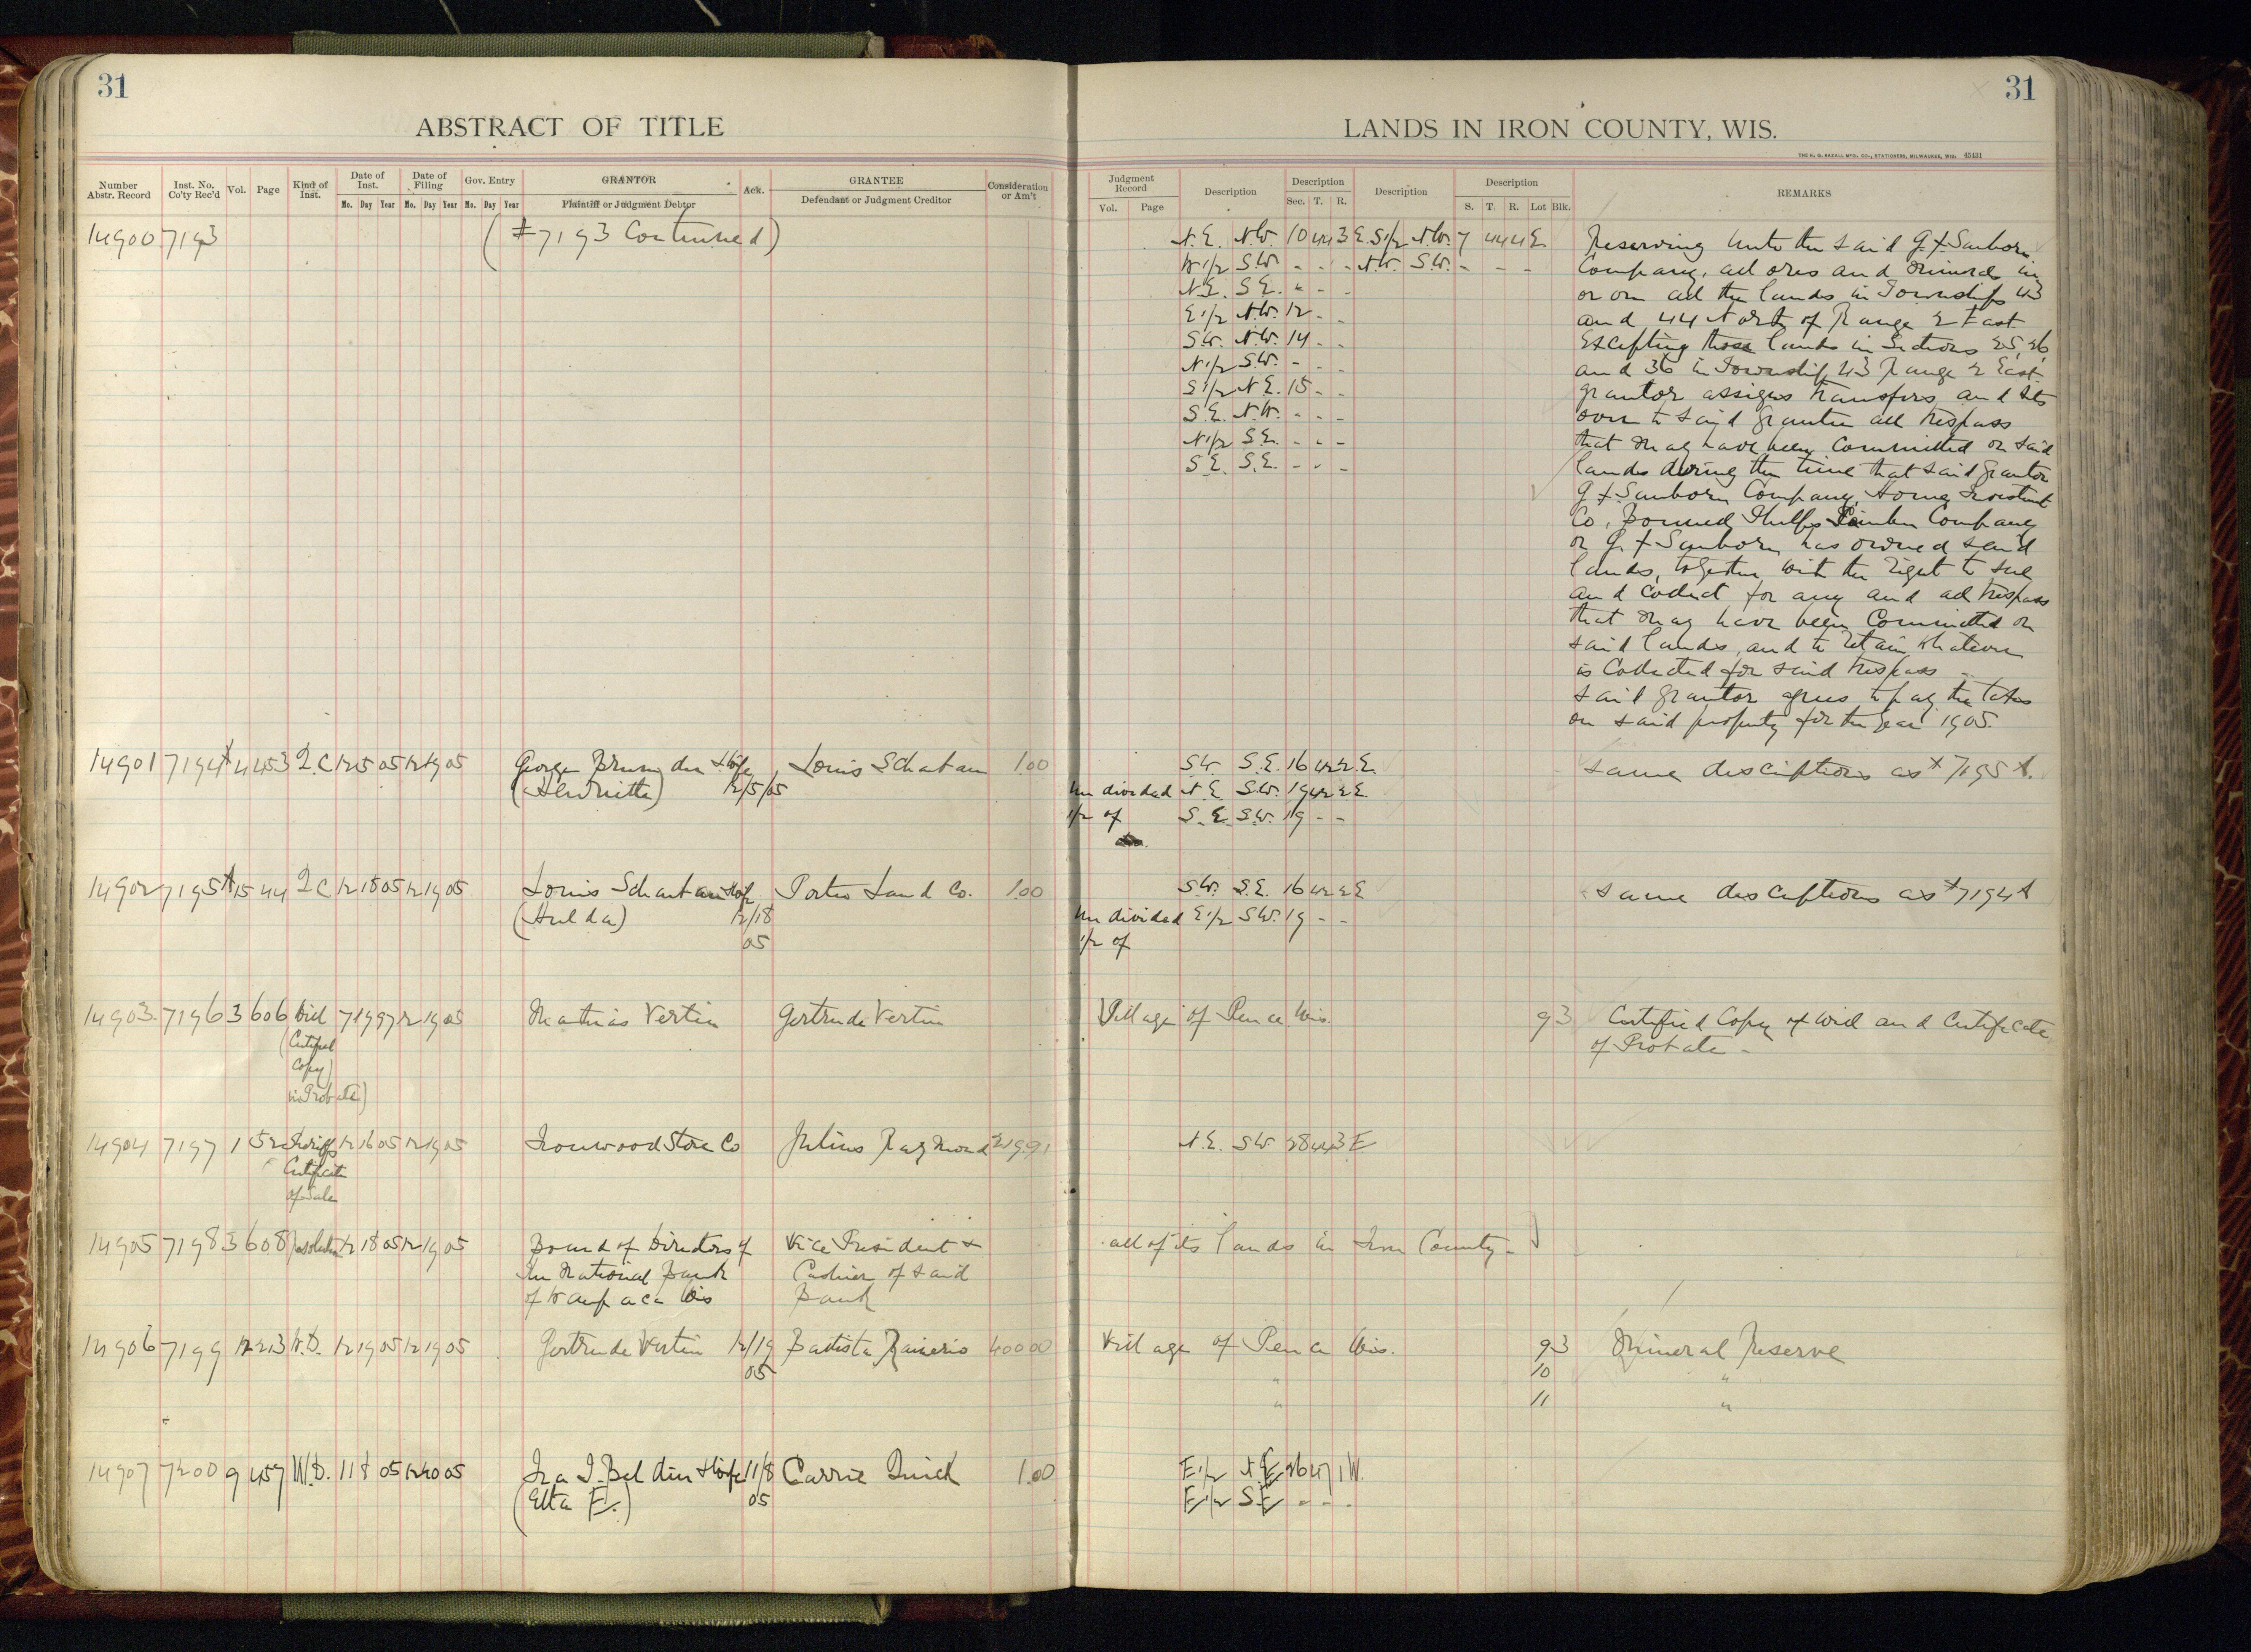 31
ABSTRACT OF TITLE
Number Abstr. Record
Inst. No. Co'ty Rec'd
Vol.
Page
Kind of Inst.
Date of Inst.
Mo. Day Year
Date of Filing
Mo. Day Year
Gov. Entry
Mo. Day Year
GRANTOR
Plaintiff or Judgment Debtor
Ack.
GRANTEE
Defendant or Judgment Creditor
Consideration or Am't
14900 7193 (#7193 Continued)
14901 7194A 4 453 Q.C 12 5 05 12 19 05 George &wife Louis 1.00
(Henriette) 12/5/05
14902 7195A 15 44 Q C 12 18 05 12 19 05 Louis &wife Porter Land Co. 1.00
(Hulda) 12/18
05
14903 7196 3 606 Will 7 19 97 12 19 05 Mathias Vertin Gertrude Vertin
(Certified
Copy
in Probate)
14904 7197 1 52 Sheriffs 12 16 05 12 19 05 Ironwood Store Co Julius Raymond 219.91
Certificate
of Sale
14905 7198 3 608 Resolution 12 18 05 12 19 05 Board of Directors of Vice President &
The National Bank Cashier of said
of Waupaca Wis Bank
14906 7199 12 213 W.D. 12 19 05 12 19 05 Gertrude Vertin 12/19 Battista Rainerio 400 00
05
14907 7200 9 457 W.D. 11 8 05 12 20 05 Ira I. Belden &wife 11/8 Carrie Quick 1.00
(Etta F.) 05
31
LANDS IN IRON COUNTY, WIS.
THE H. G. RAZALL MFG. CO., STATIONERS, MILWAUKEE, WIS. 45431
Judgment Record
Vol. Page
Description
Description
Sec. T. R.
Description
Description
S. T. R. Lot Blk.
REMARKS
N.E. N.W. 10 44 3 E. S1/2 N.W. 7 44 4 E.
W1/2 S.W. - - - N.W. S.W. - - -
N.E. S.E. " - -
E1/2 N.W. 12 - -
S.W. N.W. 14 - -
N1/2 S.W. - - -
S1/2 N.E. 15 - -
S.E. N.W. - - -
N1/2 S.E. - - -
S.E. S.E. - - -
Reserving unto the said G.F. Sanborn
Company, all ores and minerals in
or on all the lands in Townships 43
and 44 North of Range 2 East
Excepting those lands in Sections 25, 26,
and 36 in Township 43 Range 2 East.
grantor assigns transfers and sets
over to said grantee all trespass
that may have been Committed on said
lands during the time that said grantor
G F Sanborn Company, Home Investment
Co, Phelps Lumber Company
or G. F Sanborn has owned said
lands, together with the right to sue
and Collect for any and all trespass
that may have been Committed on
said lands, and to retain whatever
is Collected for said trespass -
said grantor agrees to pay the taxes
on said property for the year 1905.
SW. S.E. 16 42 2 E.
Undivided N.E. S.W. 19 42 2 E.
1/2 of S.E. S.W. 19 - -
same descriptions as #7195A.
S.W. S.E. 16 42 2 E
Undivided E1/2 S.W. 19 - -
1/2 of
same descriptions as #7194A
Village of Pence Wis. 93 Certified Copy of Will and Certificate
of Probate -
N.E. SW 28 44 3 E
all of its lands in Iron County -
Village of Pence Wis. 93 Mineral Reserve
" 10 "
" 11 "
E1/2 N.E. 26 47 1 W.
E1/2 S.E. - - -